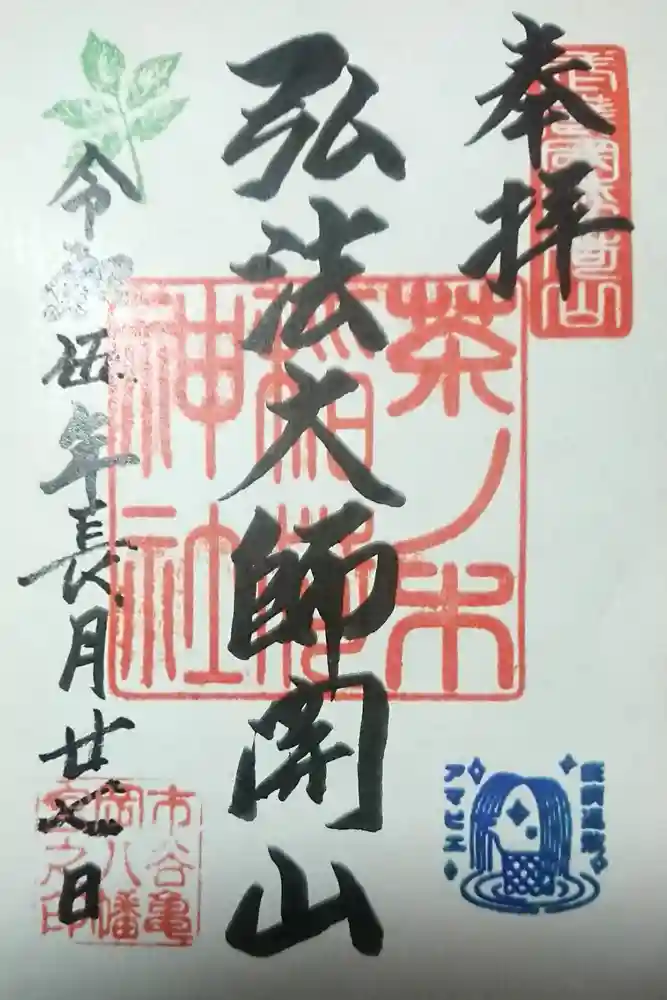 奉拝
弘法大師開山
令和伍年長月廿七日
茶ノ木
稲荷
神社
市谷亀
岡八幡
宮之印
アマビエ